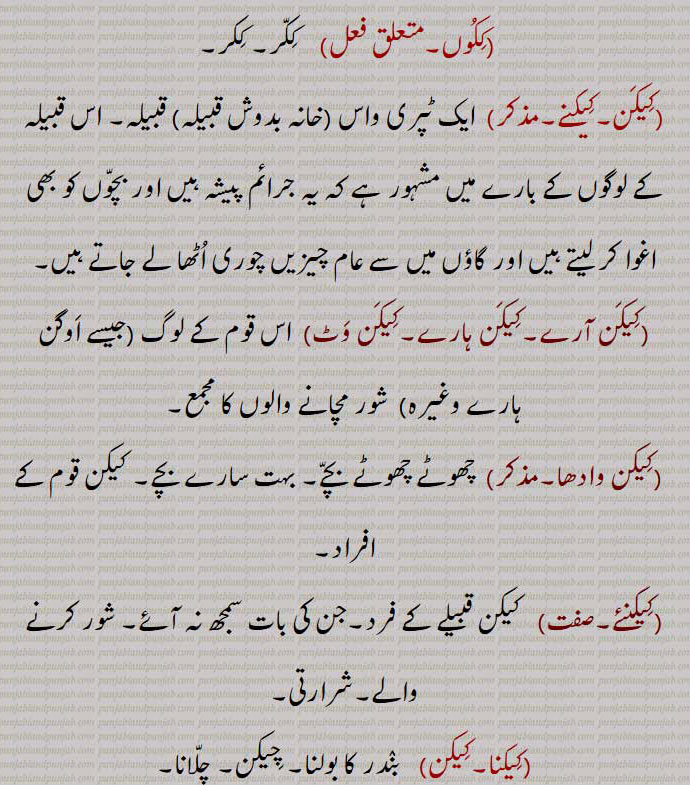 (کِکُوں۔متعلق فعل) کِکّر۔ کِکر۔
(کِیکَن۔کِیکنے۔مذکر) ایک ٹپری واس (خانہ بدوش قبیلہ) قبیلہ۔ اس قبیلہ
کے لوگوں کے بارے میں مشہور ہے کہ یہ جرائم پیشہ ہیں اور بچوّں کو بھی
اغوا کر لیتے ہیں اور گاؤں میں سے عام چیزیں چوری اُٹھا لے جاتے ہیں۔
(کِیکَن آرے۔کِیکَن ہارے۔کِیکَن وَٹ) اس قوم کے لوگ (جیسے اَوگن
ہارے وغیرہ) شور مچانے والوں کا مجمع۔
(کِیکن وادھا۔مذکر) چھوٹے چھوٹے بچّے۔ بہت سارے بچے۔ کیکن قوم کے
افراد۔
(کِیکنئے۔صفت) کیکن قبیلے کے فرد۔جن کی بات سمجھ نہ آئے۔ شور کرنے
والے۔شرارتی۔
(کِیکنا۔کِیکن) بنْدر کا بولنا۔ چِیکن۔ چلّانا۔